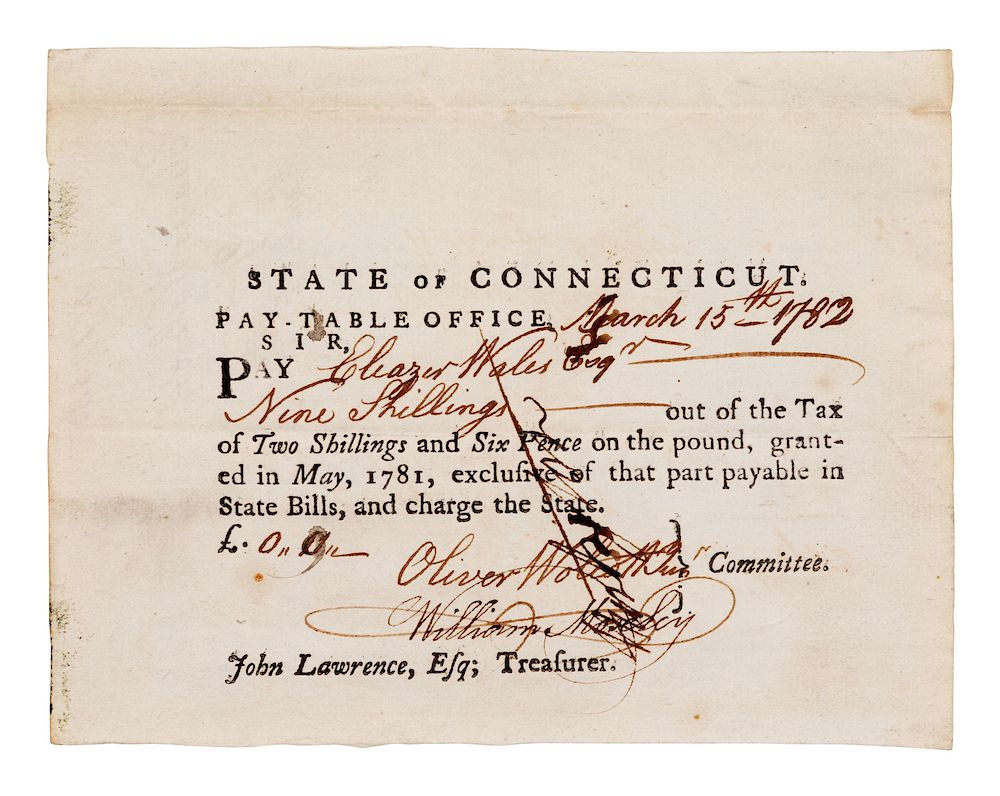 STATE OF CONNECTICUT.
PAY-TABLE OFFICE, March 15th 1782
SIR,
PAY Eleazer Wales Esqr
Nine Shillings out of the Tax
of Two Shillings and Six Pence on the pound, grant-
ed in May, 1781, excluſive of that part payable in
State Bills, and charge the State.
£. 0,, 9,,
Oliver Wolcott Junr Committee.
William Moseley
John Lawrence, Eſq; Treaſurer.